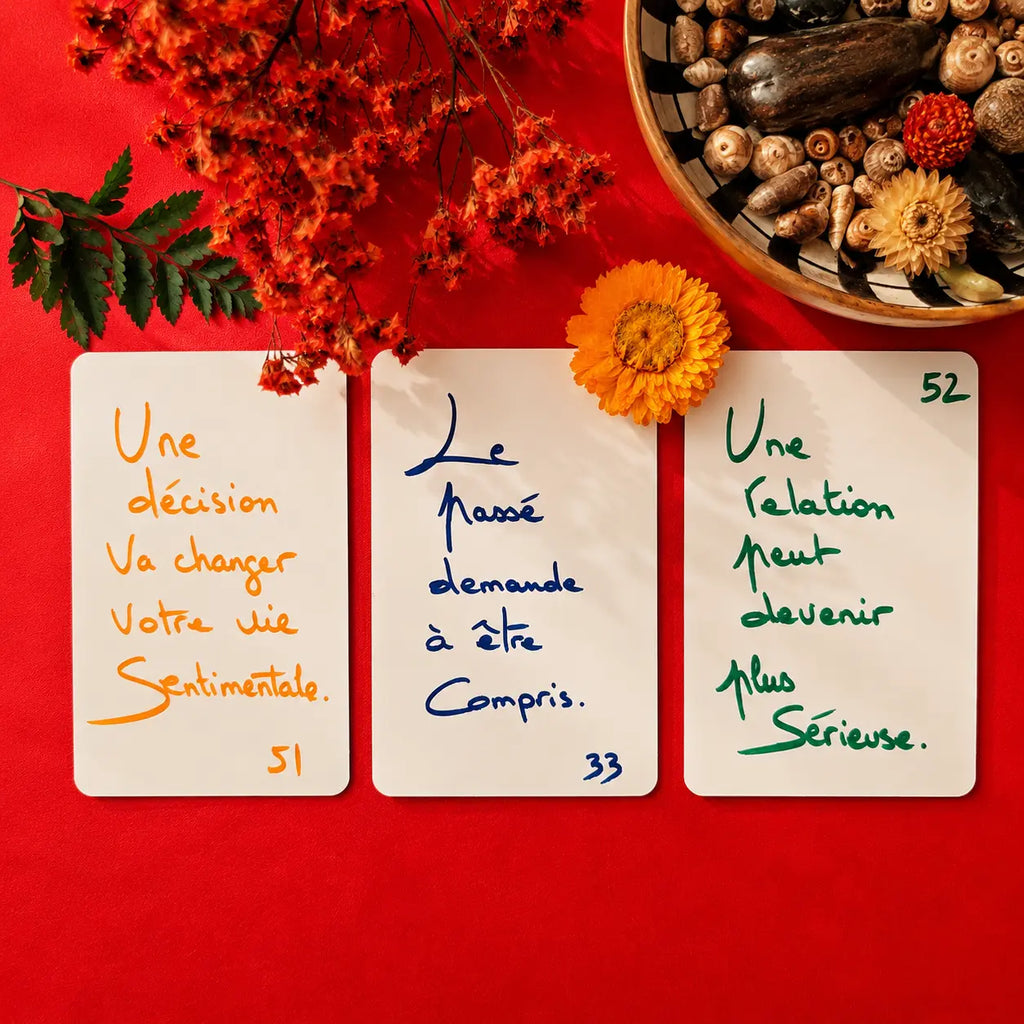 Une
décision
Va changer
Votre vie
Sentimentale.
51
Le
passé
demande
à être
Compris.
33
52
Une
relation
peut
devenir
plus
Sérieuse.